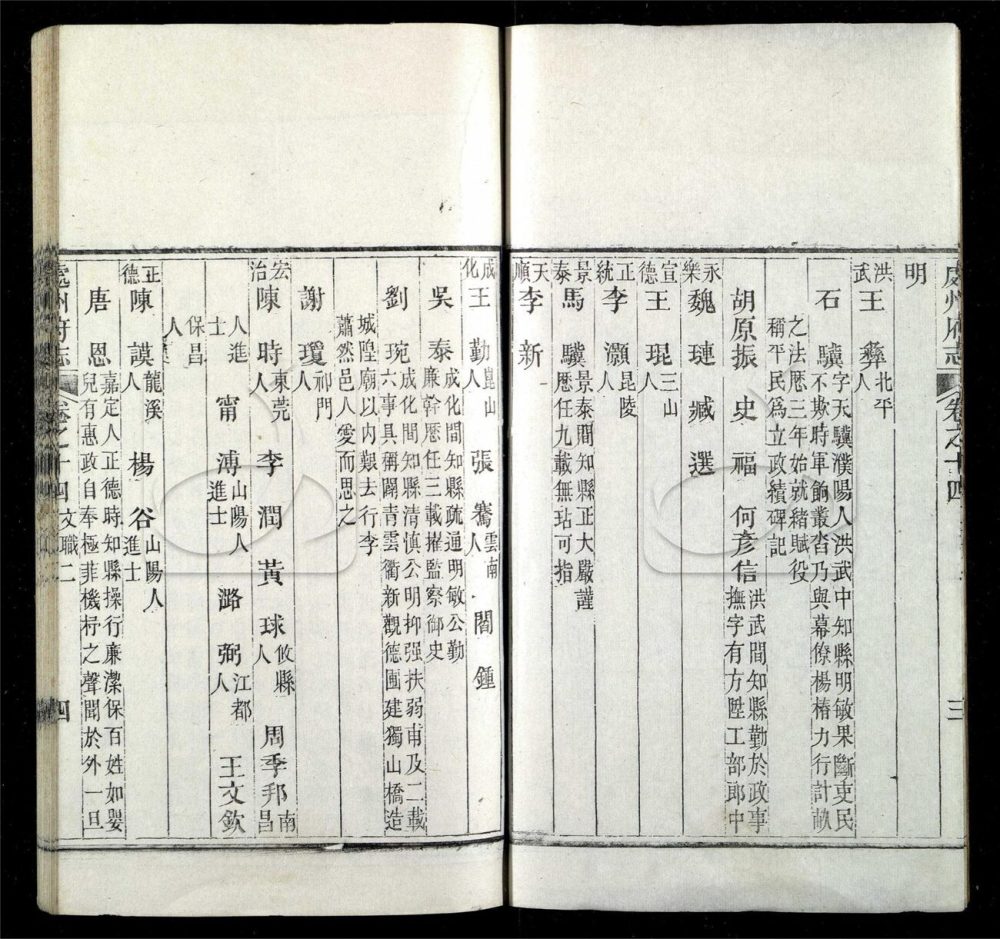 處州府志 卷之十四 三
明
洪武 王彝 北平人
石驥 字天驥濮陽人洪武中知縣明敏果斷吏民
不欺時軍餉叢沓乃與幕僚楊椿力行計畝
之法歷三年始就緒賦役
稱平民爲立政績碑記
胡原振 史福 何彥信 洪武間知縣勤於政事
撫字有方陞工部郎中
永樂 魏璉 臧選
宣德 王琨 三山人
正統 李灝 昆陵人
景泰 馬驥 景泰間知縣正大嚴謹
歷任九載無玷可指
天順 李新
成化 王勤 崑山人 張騫 雲南人 閻鍾
吳泰 成化間知縣疏通明敏公勤
廉幹歷任三載擢監察御史
劉琬 成化間知縣清慎公明抑强扶弱甫及二載
六事具稱闢靑雲衢新觀德圃建獨山橋造
城隍廟以內艱去行李
蕭然邑人愛而思之
謝瓊 祁門人
宏治 陳時 東莞人 李潤 黃球 攸縣人 周季邦 南昌
人進士 甯溥 山陽人進士 潞弼 江都人 王文欽
保昌人
正德 陳謨 龍溪人 楊谷 山陽人進士
唐恩 嘉定人正德時知縣操行廉潔保百姓如嬰
兒有惠政自奉極菲機杼之聲聞於外一旦
處州府志 卷之十四 文職二 四